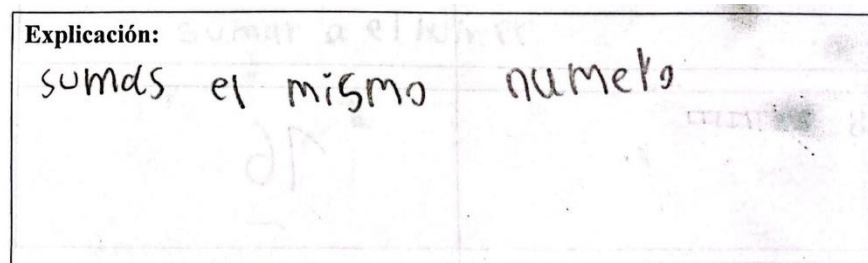 Explicación:
sumas el mismo numero